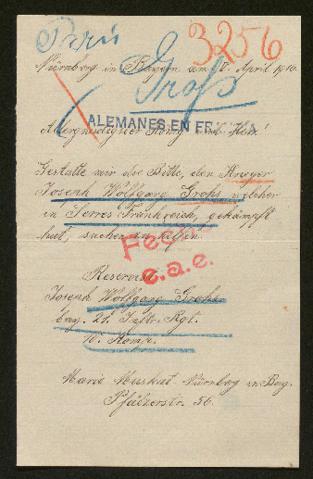 3256
Nürnberg in Bayern am 17. April 1916.
Groß
ALEMANES EN FRANCIA
Allergnädigster König und Herr!
Gestatte mir die Bitte, den Krieger
Joseph Wolfgang Grohs welcher
in Serres Frankreich, gekämpft
hat, suchen zu helfen.
Fecer
e.a.e.
Reservist
Joseph Wolfgang Grohs
bay. 21. Inftr. Rgt.
10. Komp.
Marie Muskat Nürnberg in Bay.
Pfälzerstr. 56.